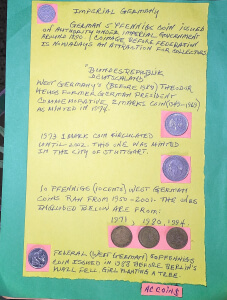 IMPERIAL GERMANY
GERMAN 5 PFENNIGE COIN ISSUED
ON AUTHORITY UNDER IMPERIAL GOVERNMENT
AROUND 1890 / COINAGE BEFORE FEDERATION
IS NOWADAYS AN ATTRACTION FOR COLLECTORS.
"BUNDESREPUBLIK
DEUTSCHLAND"
WEST GERMANY'S (BEFORE 1989) THEODOR
HEUSS FORMER GERMAN PRESIDENT
COMMEMORATIVE 2 MARKS COIN
AS MINTED IN 1974.
1973 1 MARK COIN CIRCULATED
UNTIL 2002. THIS ONE WAS MINTED
IN THE CITY OF STUTTGART.
10 PFENNIGS (10 CENTS) WEST GERMAN
COINS RAN FROM 1950-2001. THE ONES
INCLUDED BELOW ARE FROM:
1971, 1980, 1984
FEDERAL (WEST GERMAN) 50 PFENNIG
COIN ISSUED IN 1988 BEFORE BERLIN'S
WALL FELL. GIRL PLANTING A TREE.
AC COINS